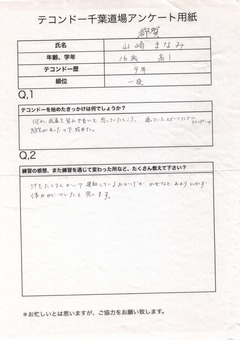 テコンドー千葉道場アンケート用紙
都賀
氏名
山崎 まなみ
年齢、学年
16歳 高1
テコンドー歴
9年
級位
一級
Q.1
テコンドーを始めたきっかけは何でしょうか？
何か武道を習わせたいと思っていたところ、通っていたスポーツクラブに
テコンドーの
があったので始めた。
Q.2
練習の感想、また練習を通じて変わった所など、たくさん教えて下さい？
体力がついたと思います。
＊お忙しいとは思いますが、ご協力をお願い致します。